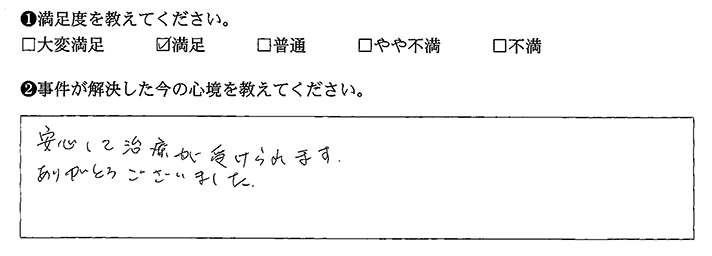 ❶満足度を教えてください。
□大変満足 ☑満足 □普通 □やや不満 □不満
❷事件が解決した今の心境を教えてください。
安心して治療が受けられます.
ありがとうございました.